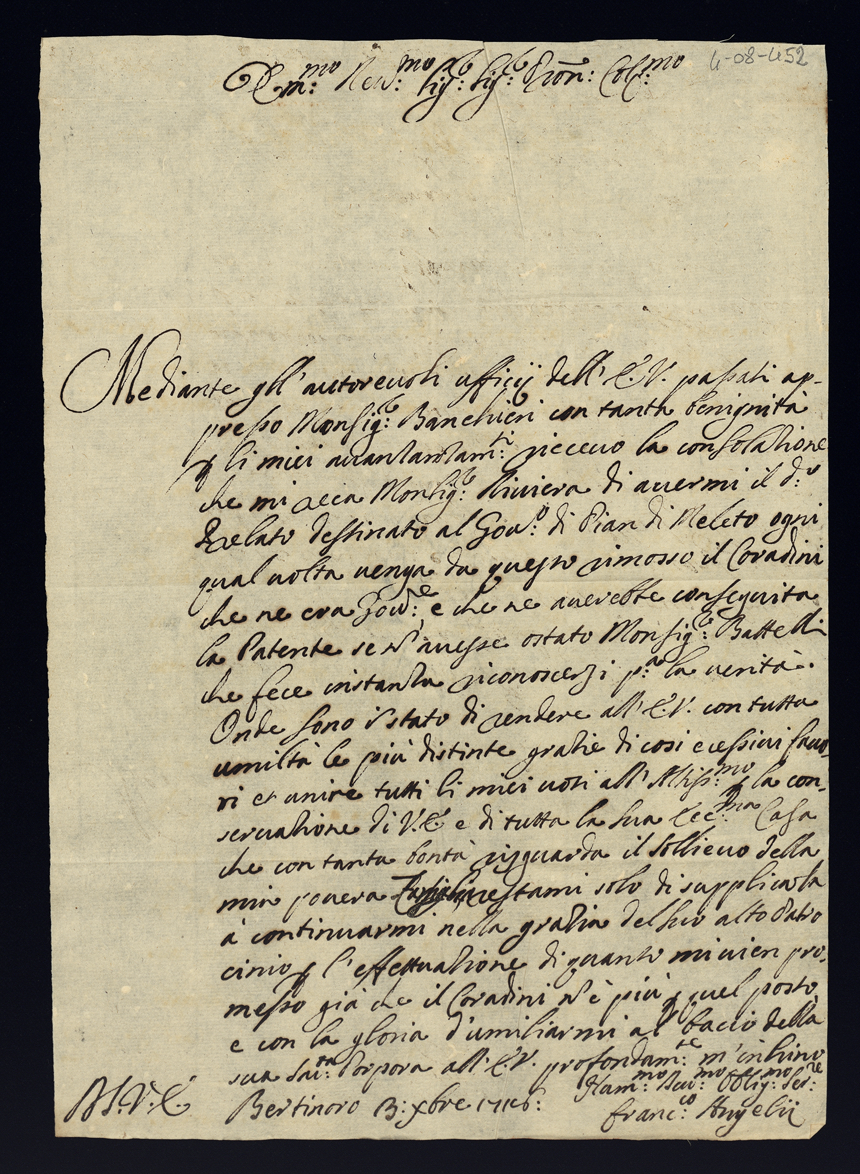 4-08-452
Em:mo Reu:mo Sig:r Sig:r Pron: Col:mo
Mediante gll'autoreuoli ufficij dell'E.V. passati ap-
presso Monsig:r Banchieri con tanta benignità
p li miei auantaram:ti riceuo la consolatione
che mi reca Monsig:r Riuiera di auermi il d:o
Prelato destinato al Gou:o di Pian di Meleto ogni
qual uolta uenga da questo rimosso il Coradini
che ne era Gou:re, e che ne auerebbe conseguita
la Patente se n'auesse ostato Monsig:r Battelli
che fece instanza riconoscersi p:a la uerità.
Onde sono à rendere all'E.V. con tutta
umiltà le più distinte gratie di così ecessiui fauo-
ri et unire tutti li miei uoti all'Altiss:mo p la con-
seruatione di V.E. e di tutta la sua Ecc:ma Casa
che con tanta bontà risguarda il sollieuo della
mia pouera restami solo di supplicarla
à continuarmi nella gratia del suo alto Patro
cinio p l'effettuatione di quanto mi uien pro-
messo già che il Coradini n'è più p quel posto,
e con la gloria d'umiliarmi al bacio della
sua Sac:ra Porpora all'E.V. profondam:te m'inchino
Bertinoro 13: xbre 1716:
Hum:mo Deu:mo Oblig:mo Ser:re
Franc:co Angelij